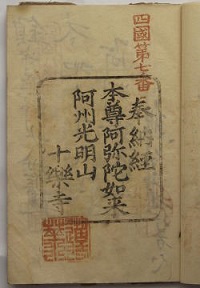 四國第七番
奉納經
本尊阿弥陀如来
阿州光明山
十樂寺